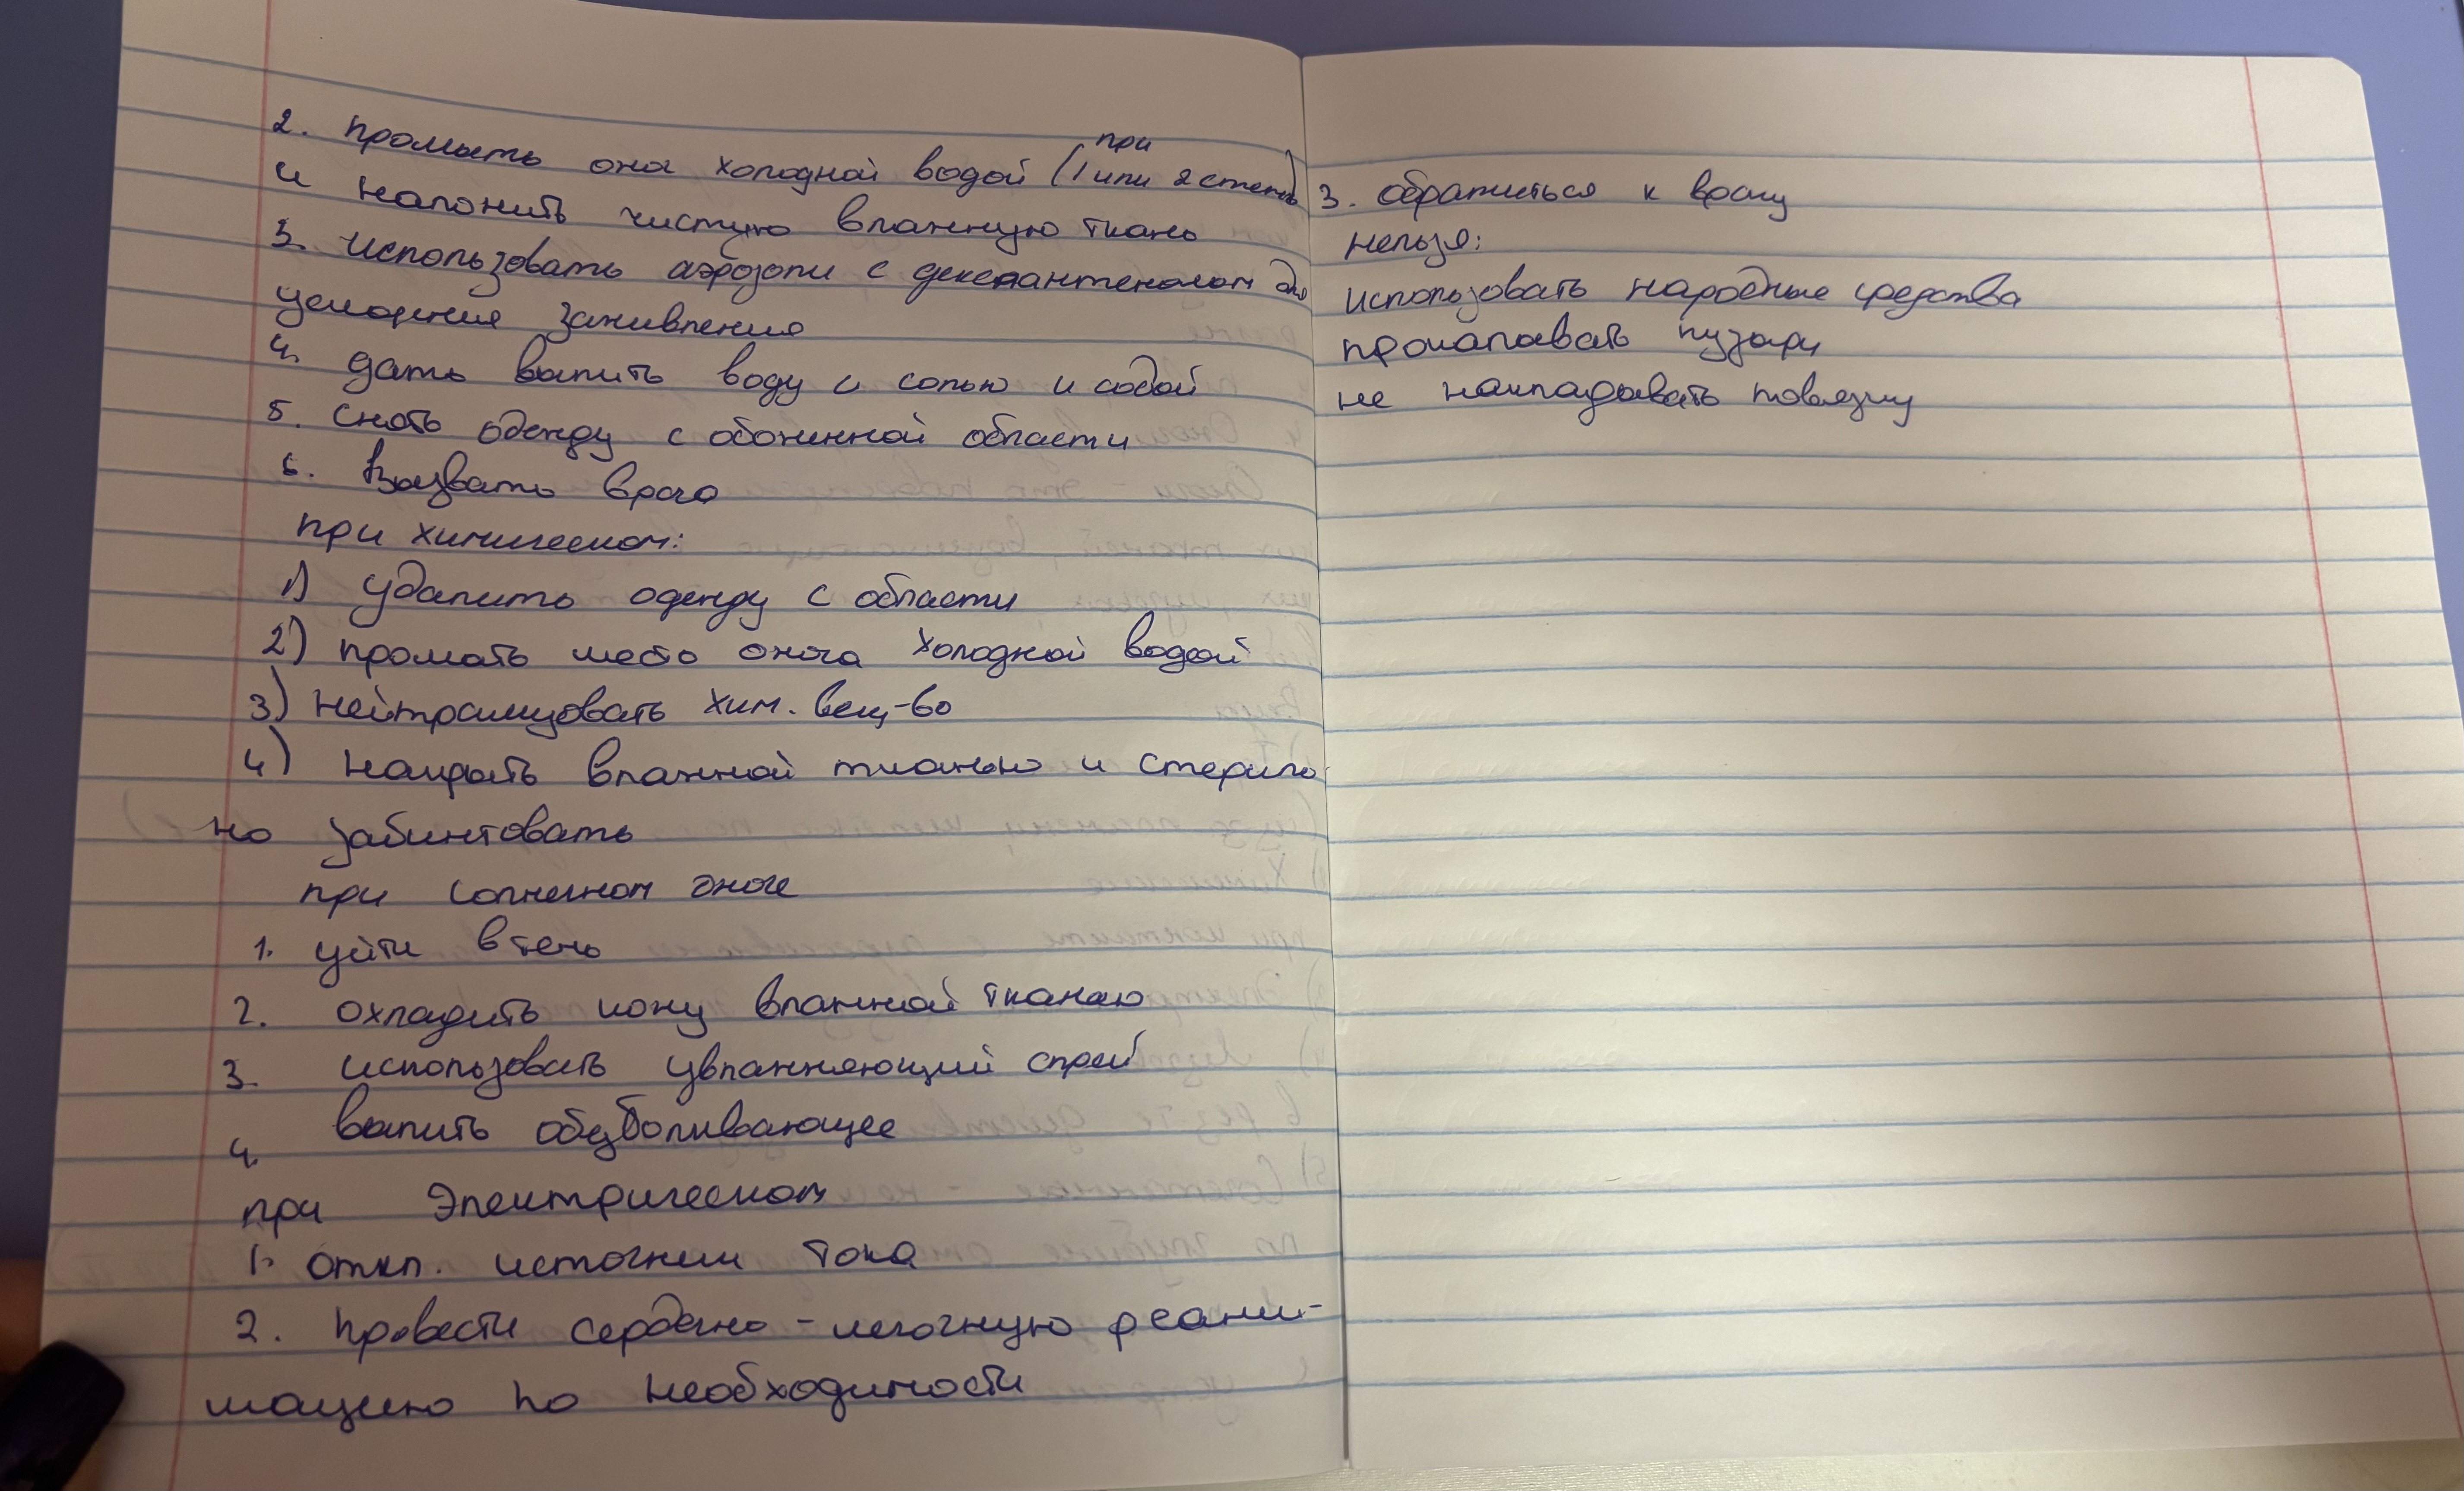 2. промыть ожог холодной водой (при 1 или 2 степень)
и наложить чистую влажную ткань
3. использовать аэрозоли с декспантенолом для
ускорения заживления
4. дать выпить воду с солью и содой
5. снять одежду с обожженной области
6. Вызвать врача
при химическом:
1) удалить одежду с области
2) промыть место ожога холодной водой
3) нейтрализовать хим. вещ-во
4) накрыть влажной тканью и стериль-
но забинтовать
при солнечном ожоге
1. уйти в тень
2. охладить кожу влажной тканью
3. использовать увлажняющий спрей
4. выпить обезболивающее
при Электрическом
1. откл. источник тока
2. провести сердечно-легочную реани-
мацию по необходимости
3. обратиться к врачу
нельзя:
использовать народные средства
прокалывать пузыри
не накладывать повязку